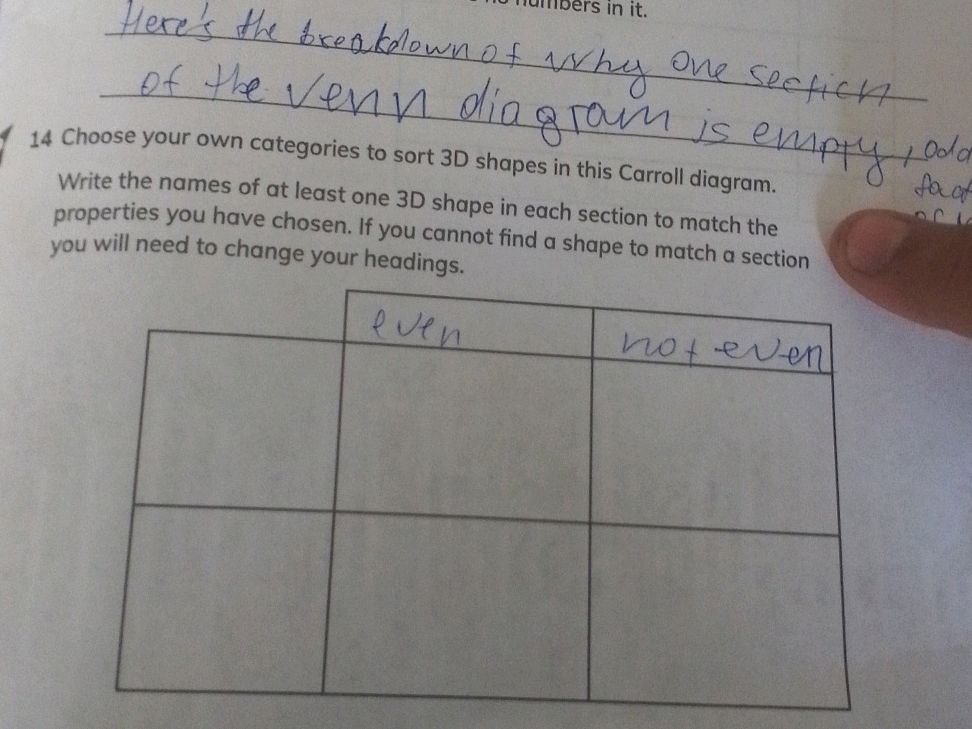 numbers in it.
Here's the breakdown of why one section
of the venn diagram is empty, odd
fact
14 Choose your own categories to sort 3D shapes in this Carroll diagram.
Write the names of at least one 3D shape in each section to match the
properties you have chosen. If you cannot find a shape to match a section
you will need to change your headings.
even
not even